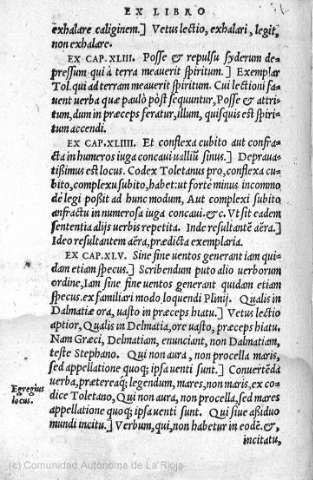 EX LIBRO
exhalare caliginem.] Vetus lectio, exhalari, legit,
non exhalare.
EX CAP. XLIII. Posse & repulsu syderum de-
pressum qui à terra meauerit spiritum.] Exemplar
Tol. qui ad terran meauerit spiritum. Cui lectioni fa-
uent verba quę paulò pòst sequuntur, Posse & attri-
tum, dum in præceps feratur, illum, quisquis est spiri-
tum accendi.
EX CAP. XLIIII. Et conflexa cubito aut confra-
cta in humeros iuga concaui valliũ sinus.] Depraua-
tißimus est locus. Codex Toletanus pro, conflexa cu-
bito, complexu subito, habet: ut fortè minus incommo
dè legi poßit ad hunc modum, Aut complexi subito
anfractu in numerosa iuga concaui. &c. Vt sit eadem
sententia alijs verbis repetita. Inde resultantẽ aëra.]
Ideo resultantem aëra, prædicta exemplaria.
EX CAP. XLV. Sine fine uentos generant iam qui-
dam etiam specus.] Scribendum puto alio uerborum
ordine, Iam sine fine uentos generant quidam etiam
specus. ex familiari modo loquendi Plinij. Qualis in
Dalmatiæ ora, uasto in præceps hiatu.] Vetus lectio
aptior, Qualis in Delmatia, ore uasto, præceps hiatu.
Nam Græci, Delmatiam, enunciant, non Dalmatiam,
teste Stephano. Qui non aura, non procella maris,
sed appellatione quoq; ipsa uenti sunt.] Conuertẽda
verba, prætereaq; legendum, mares, non maris, ex co-
dice Toletano, Qui non aura, non procella, sed mares
appellatione quoq; ipsa uenti sunt. Qui siue aßiduo
mundi incitu.] Verbum, qui, non habetur in eodẽ. &,
incitatu,
Egregius
locus.
(c) Comunidad Autónoma de La Rioja